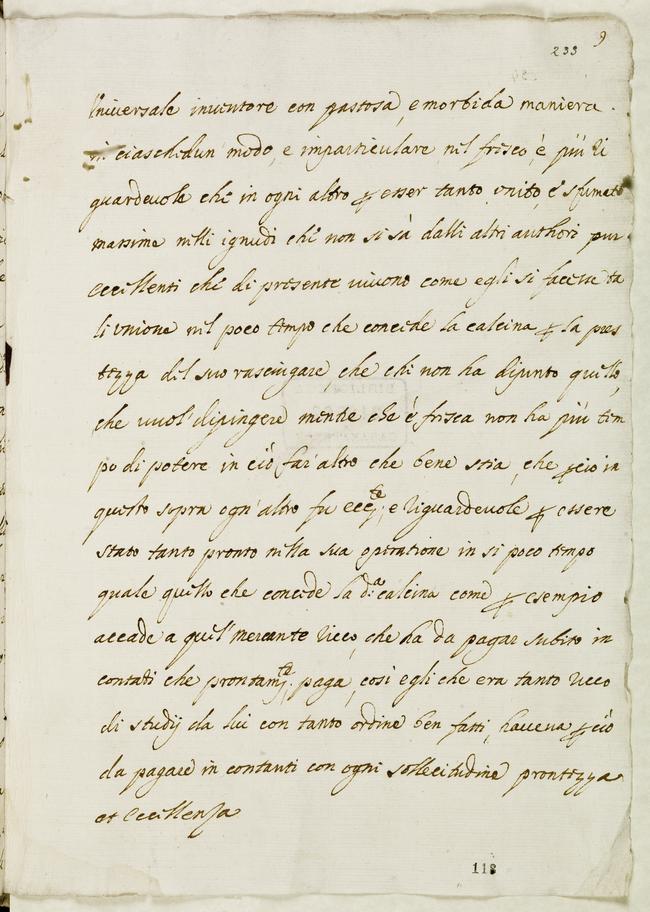 9
233
Vniuersale inuentore con pastosa, e morbida maniera.
in ciaschedun' modo, e imparticulare nel fresco, è più ri
guardeuole che in ogni altro ꝑ esser tanto vnito, e sfumato
massime nelli ignudi che non si sà dalli altri authori pur
eccellenti che di presente viuono come egli si facesse ta
li vnione nel poco tempo che concede la calcina ꝑ la pres
tezza del suo rasciugare, che chi non ha dipunto quello,
che vuol' dipingere mentre che è fresca non ha più tem
po di potere in ciò far' altro che bene stia, che ꝑciò in
questo sopra ogn' altro fu ecc.te, e riguardeuole ꝑ essere
stato tanto pronto nella sua operatione in sì poco tempo
quale quello che concede la d.a calcina come ꝑ esempio
accade a quel' mercante ricco, che ha da pagar subito in
contati che prontam.te paga, così egli che era tanto ricco
di studij da lui con tanto ordine ben fatti, haueua ꝑciò
da pagare in contanti con ogni sollecitudine prontezza
et eccellenza
118